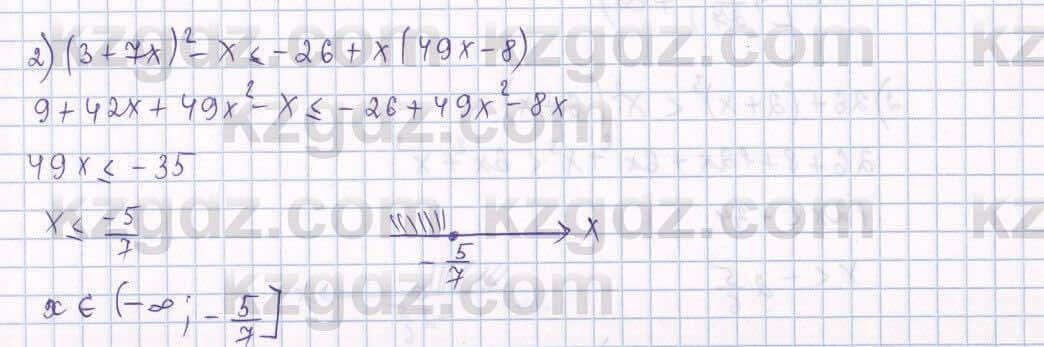 2) (3 + 7x)² - x ≤ -26 + x (49x - 8)
9 + 42x + 49x² - x ≤ -26 + 49x² - 8x
49x ≤ -35
x ≤ -5/7
x
-5/7
x ∈ (-∞; -5/7]
kzgdz.com kzgdz.com kz
kzgdz.com kzgdz.com
kzgdz.com kzgdz.com kz
kzgdz.com kzgdz.com